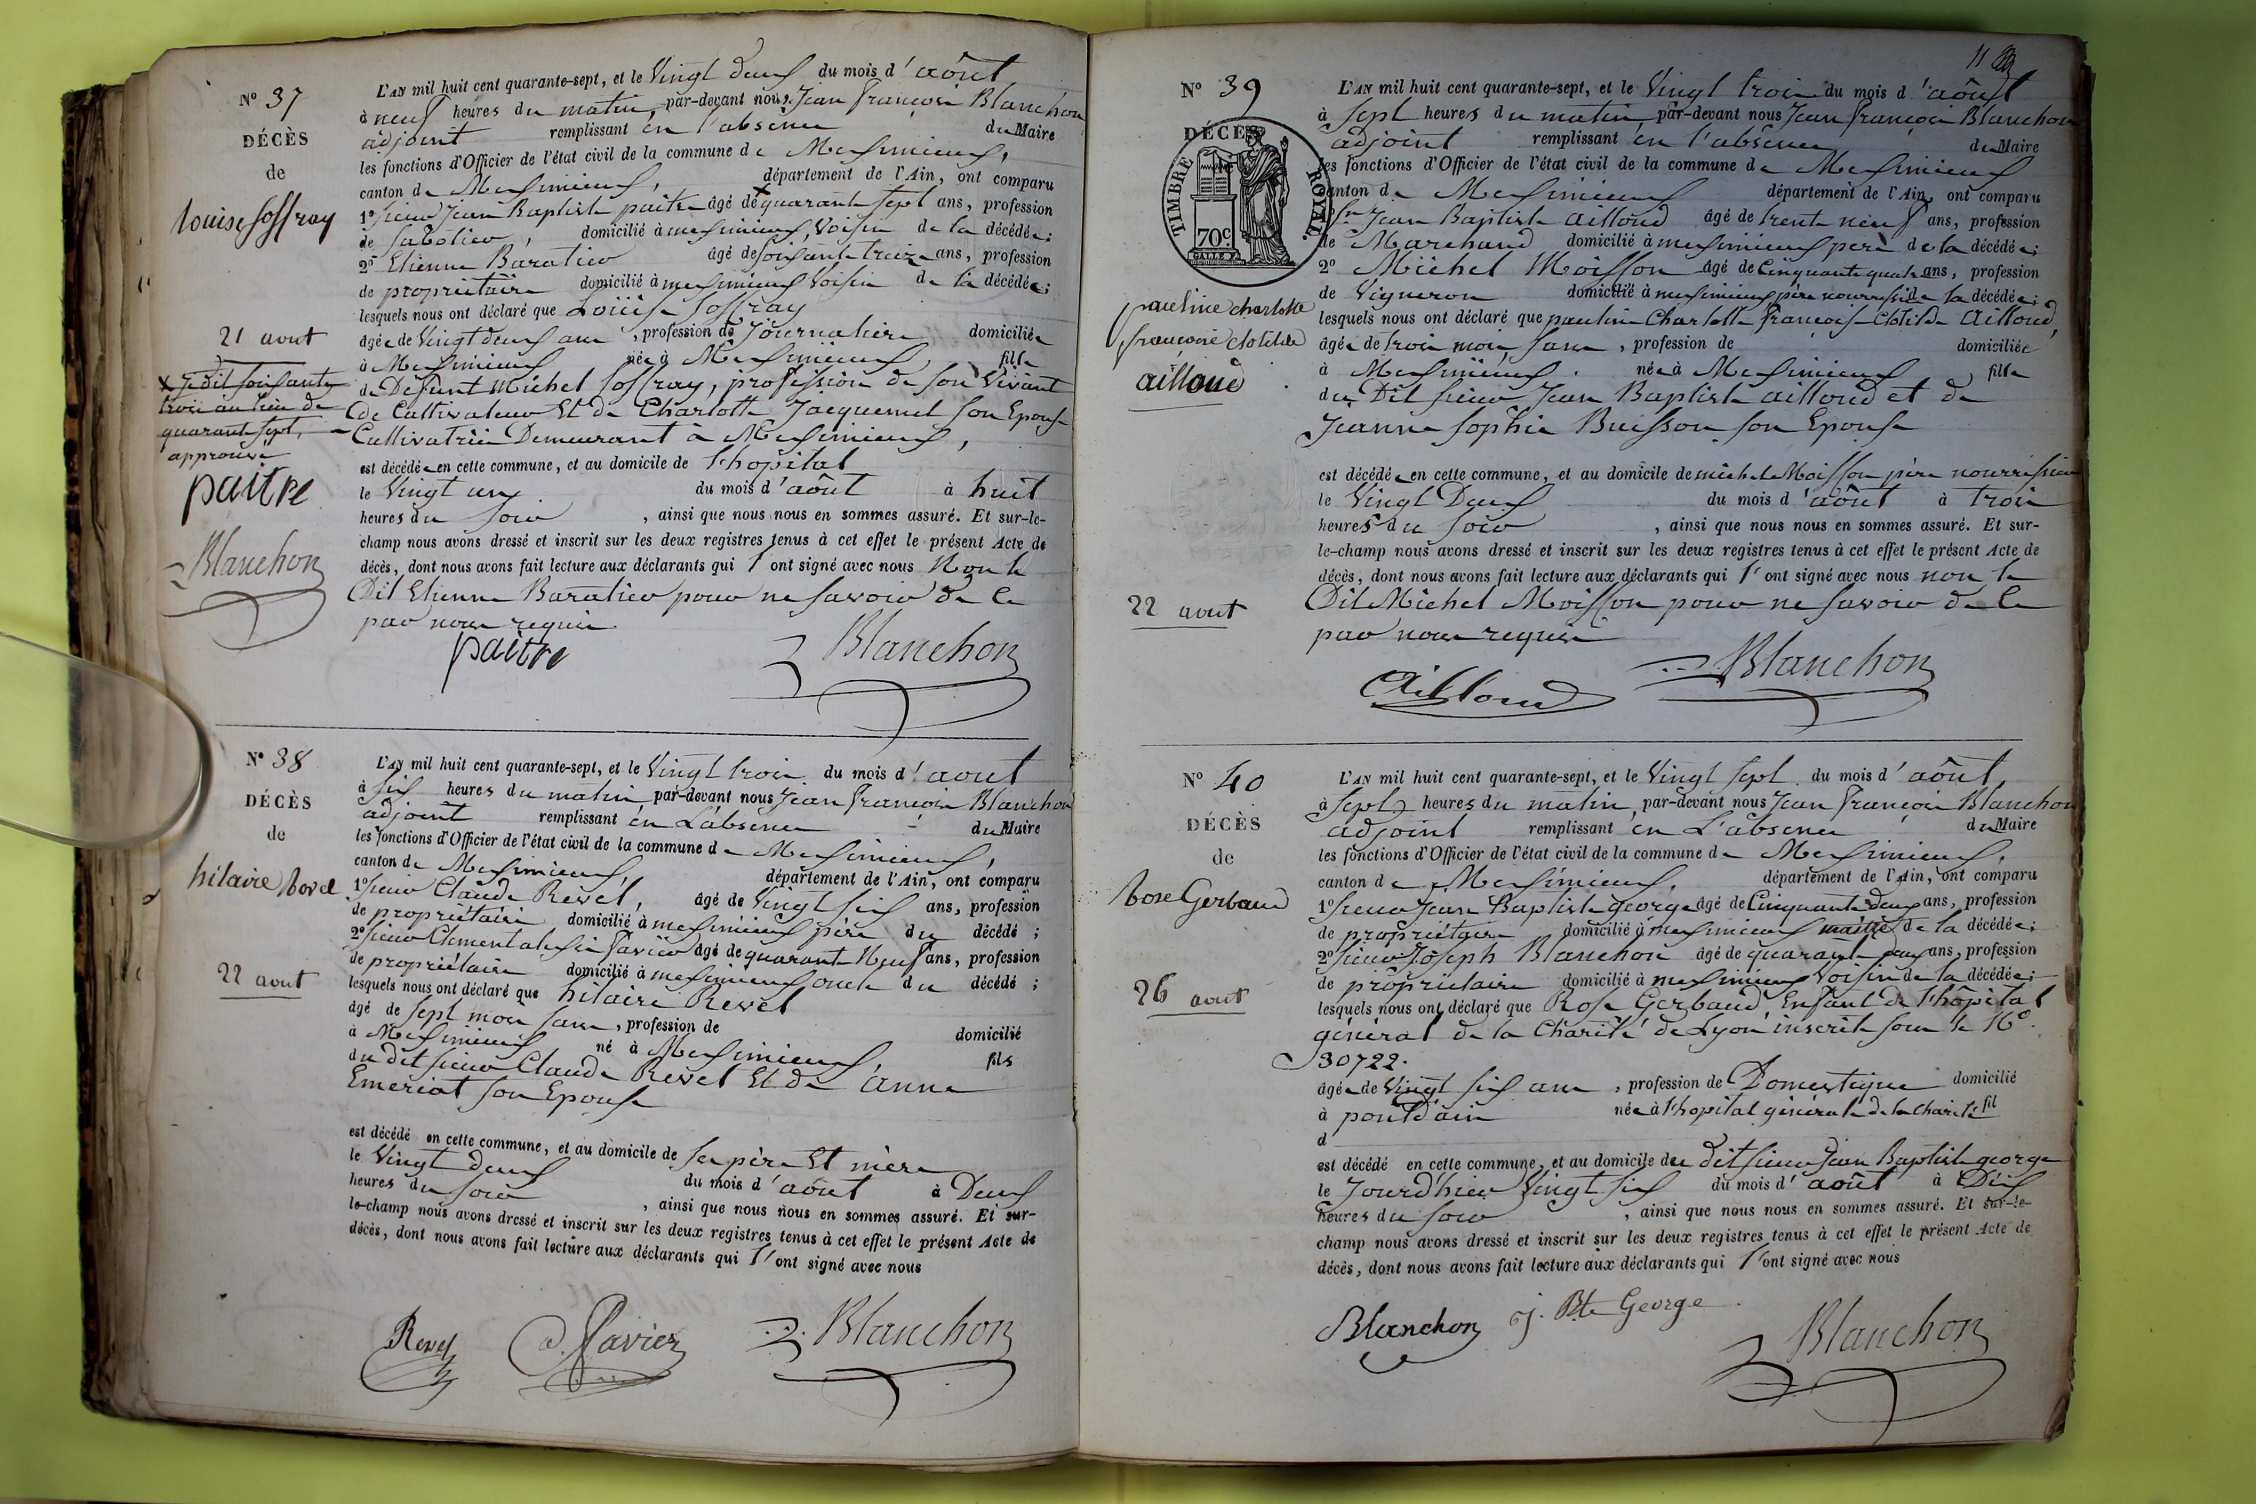 N° 37
DÉCÈS
de
Louise Soffray
21 aout
X je dit soixante
trois au lieu de
quarante sept,
approuvé
paitre
Blanchon
L'AN mil huit cent quarante-sept, et le Vingt deux du mois d'aôut
à neuf heures du matin, par-devant nous Jean François Blanchon
adjoint remplissant en l'absence du Maire
les fonctions d'Officier de l'état civil de la commune de Meximieux,
canton de Meximieux, département de l'Ain, ont comparu
1° Sieur Jean Baptiste paitre âgé de X quarante sept ans, profession
de Sabotier, domicilié à meximieux, Voisin de la décédée;
2° Etienne Baratier âgé de soixante treize ans, profession
de propriétaire domicilié à meximieux Voisin de la décédée;
lesquels nous ont déclaré que Louise Soffray
âgée de Vingt deux ans, profession de Journalière domiciliée
à Meximieux née à Meximieux, fille
de Défunt Michel Soffray, profession de son Vivant
de Cultivateur Et de Charlotte Jacquemet son Epouse
Cultivatrice Demeurant à Meximieux,
est décédée en cette commune, et au domicile de l'hopital
le Vingt un du mois d'aôut à huit
heures du soir, ainsi que nous nous en sommes assuré. Et sur-le-
champ nous avons dressé et inscrit sur les deux registres tenus à cet effet le présent Acte de
décès, dont nous avons fait lecture aux déclarants qui l'ont signé avec nous Non le
Dit Etienne Baratier pour ne savoir de ce
par nous requis
paitre Blanchon
N° 38
DÉCÈS
de
hilaire Revel
22 aout
L'AN mil huit cent quarante-sept, et le Vingt trois du mois d'aout
à six heures du matin, par-devant nous Jean François Blanchon
adjoint remplissant en L'absence du Maire
les fonctions d'Officier de l'état civil de la commune de Meximieux,
canton de Meximieux, département de l'Ain, ont comparu
1° Sieur Claude Revel, âgé de Vingt six ans, profession
de propriétaire domicilié à meximieux père du décédé;
2° Sieur Clement alexis Favier âgé de quarante Neuf ans, profession
de propriétaire domicilié à meximieux oncle du décédé;
lesquels nous ont déclaré que hilaire Revel
âgé de sept mois sans, profession de domicilié
à Meximieux né à Meximieux fils
du dit sieur Claude Revel Et de anne
Emeriat son Epouse
est décédé en cette commune, et au domicile de ses père Et mère
le Vingt deux du mois d'aôut à Deux
heures du soir, ainsi que nous nous en sommes assuré. Et sur-
le-champ nous avons dressé et inscrit sur les deux registres tenus à cet effet le présent Acte de
décès, dont nous avons fait lecture aux déclarants qui l'ont signé avec nous
Revel Favier Blanchon
11
N° 39
DÉCÈS
TIMBRE ROYAL.
70c.
pauline charlotte
françoise clotilde
ailloud
22 aout
L'AN mil huit cent quarante-sept, et le Vingt trois du mois d'aôut
à sept heures du matin, par-devant nous Jean françois Blanchon
adjoint remplissant en l'absence du Maire
les fonctions d'Officier de l'état civil de la commune de Meximieux
canton de Meximieux département de l'Ain, ont comparu
Sr Jean Baptiste ailloud âgé de trente neuf ans, profession
de Marchand domicilié à meximieux père de la décédée;
2° Michel Moisson âgé de Cinquante quatre ans, profession
de Vigneron domicilié à meximieux père nourrissier de la décédée;
lesquels nous ont déclaré que pauline Charlotte françoise Clotilde Ailloud,
âgée de trois mois sans, profession de domiciliée
à Meximieux. née à Meximieux fille
du Dit sieur Jean Baptiste ailloud et de
Jeanne Sophie Buisson son Epouse
est décédée en cette commune, et au domicile de michel Moisson père nourrissier
le Vingt Deux du mois d'aôut à trois
heures du soir, ainsi que nous nous en sommes assuré. Et sur-
le-champ nous avons dressé et inscrit sur les deux registres tenus à cet effet le présent Acte de
décès, dont nous avons fait lecture aux déclarants qui l'ont signé avec nous non le
Dit Michel Moisson pour ne savoir de ce
par nous requis
Ailloud Blanchon
N° 40
DÉCÈS
de
Rose Gerbaud
26 aout
L'AN mil huit cent quarante-sept, et le Vingt sept du mois d'aôut
à sept heures du matin, par-devant nous Jean françois Blanchon
adjoint remplissant en L'absence du Maire
les fonctions d'Officier de l'état civil de la commune de Meximieux.
canton de Meximieux. département de l'Ain, ont comparu
1° Sieur Jean Baptiste george âgé de Cinquante deux ans, profession
de propriétaire domicilié à meximieux maitre de la décédée;
2° Sieur Joseph Blanchon âgé de quarante ans, profession
de propriétaire domicilié à meximieux Voisin de la décédée;
lesquels nous ont déclaré que Rose Gerbaud, Enfant de l'hôpital
général de la Charité de Lyon, inscrite sous le N°.
30722.
âgée de Vingt six ans, profession de Domestique domicilié
à pontdain née à l'hopital général de la charité fil
d
est décédé en cette commune, et au domicile du dit sieur Jean Baptiste george
le Jourd'hier Vingt six du mois d'août à Dix
heures du soir, ainsi que nous nous en sommes assuré. Et sur-le-
champ nous avons dressé et inscrit sur les deux registres tenus à cet effet le présent Acte de
décès, dont nous avons fait lecture aux déclarants qui l'ont signé avec nous
Blanchon j. Bte George Blanchon